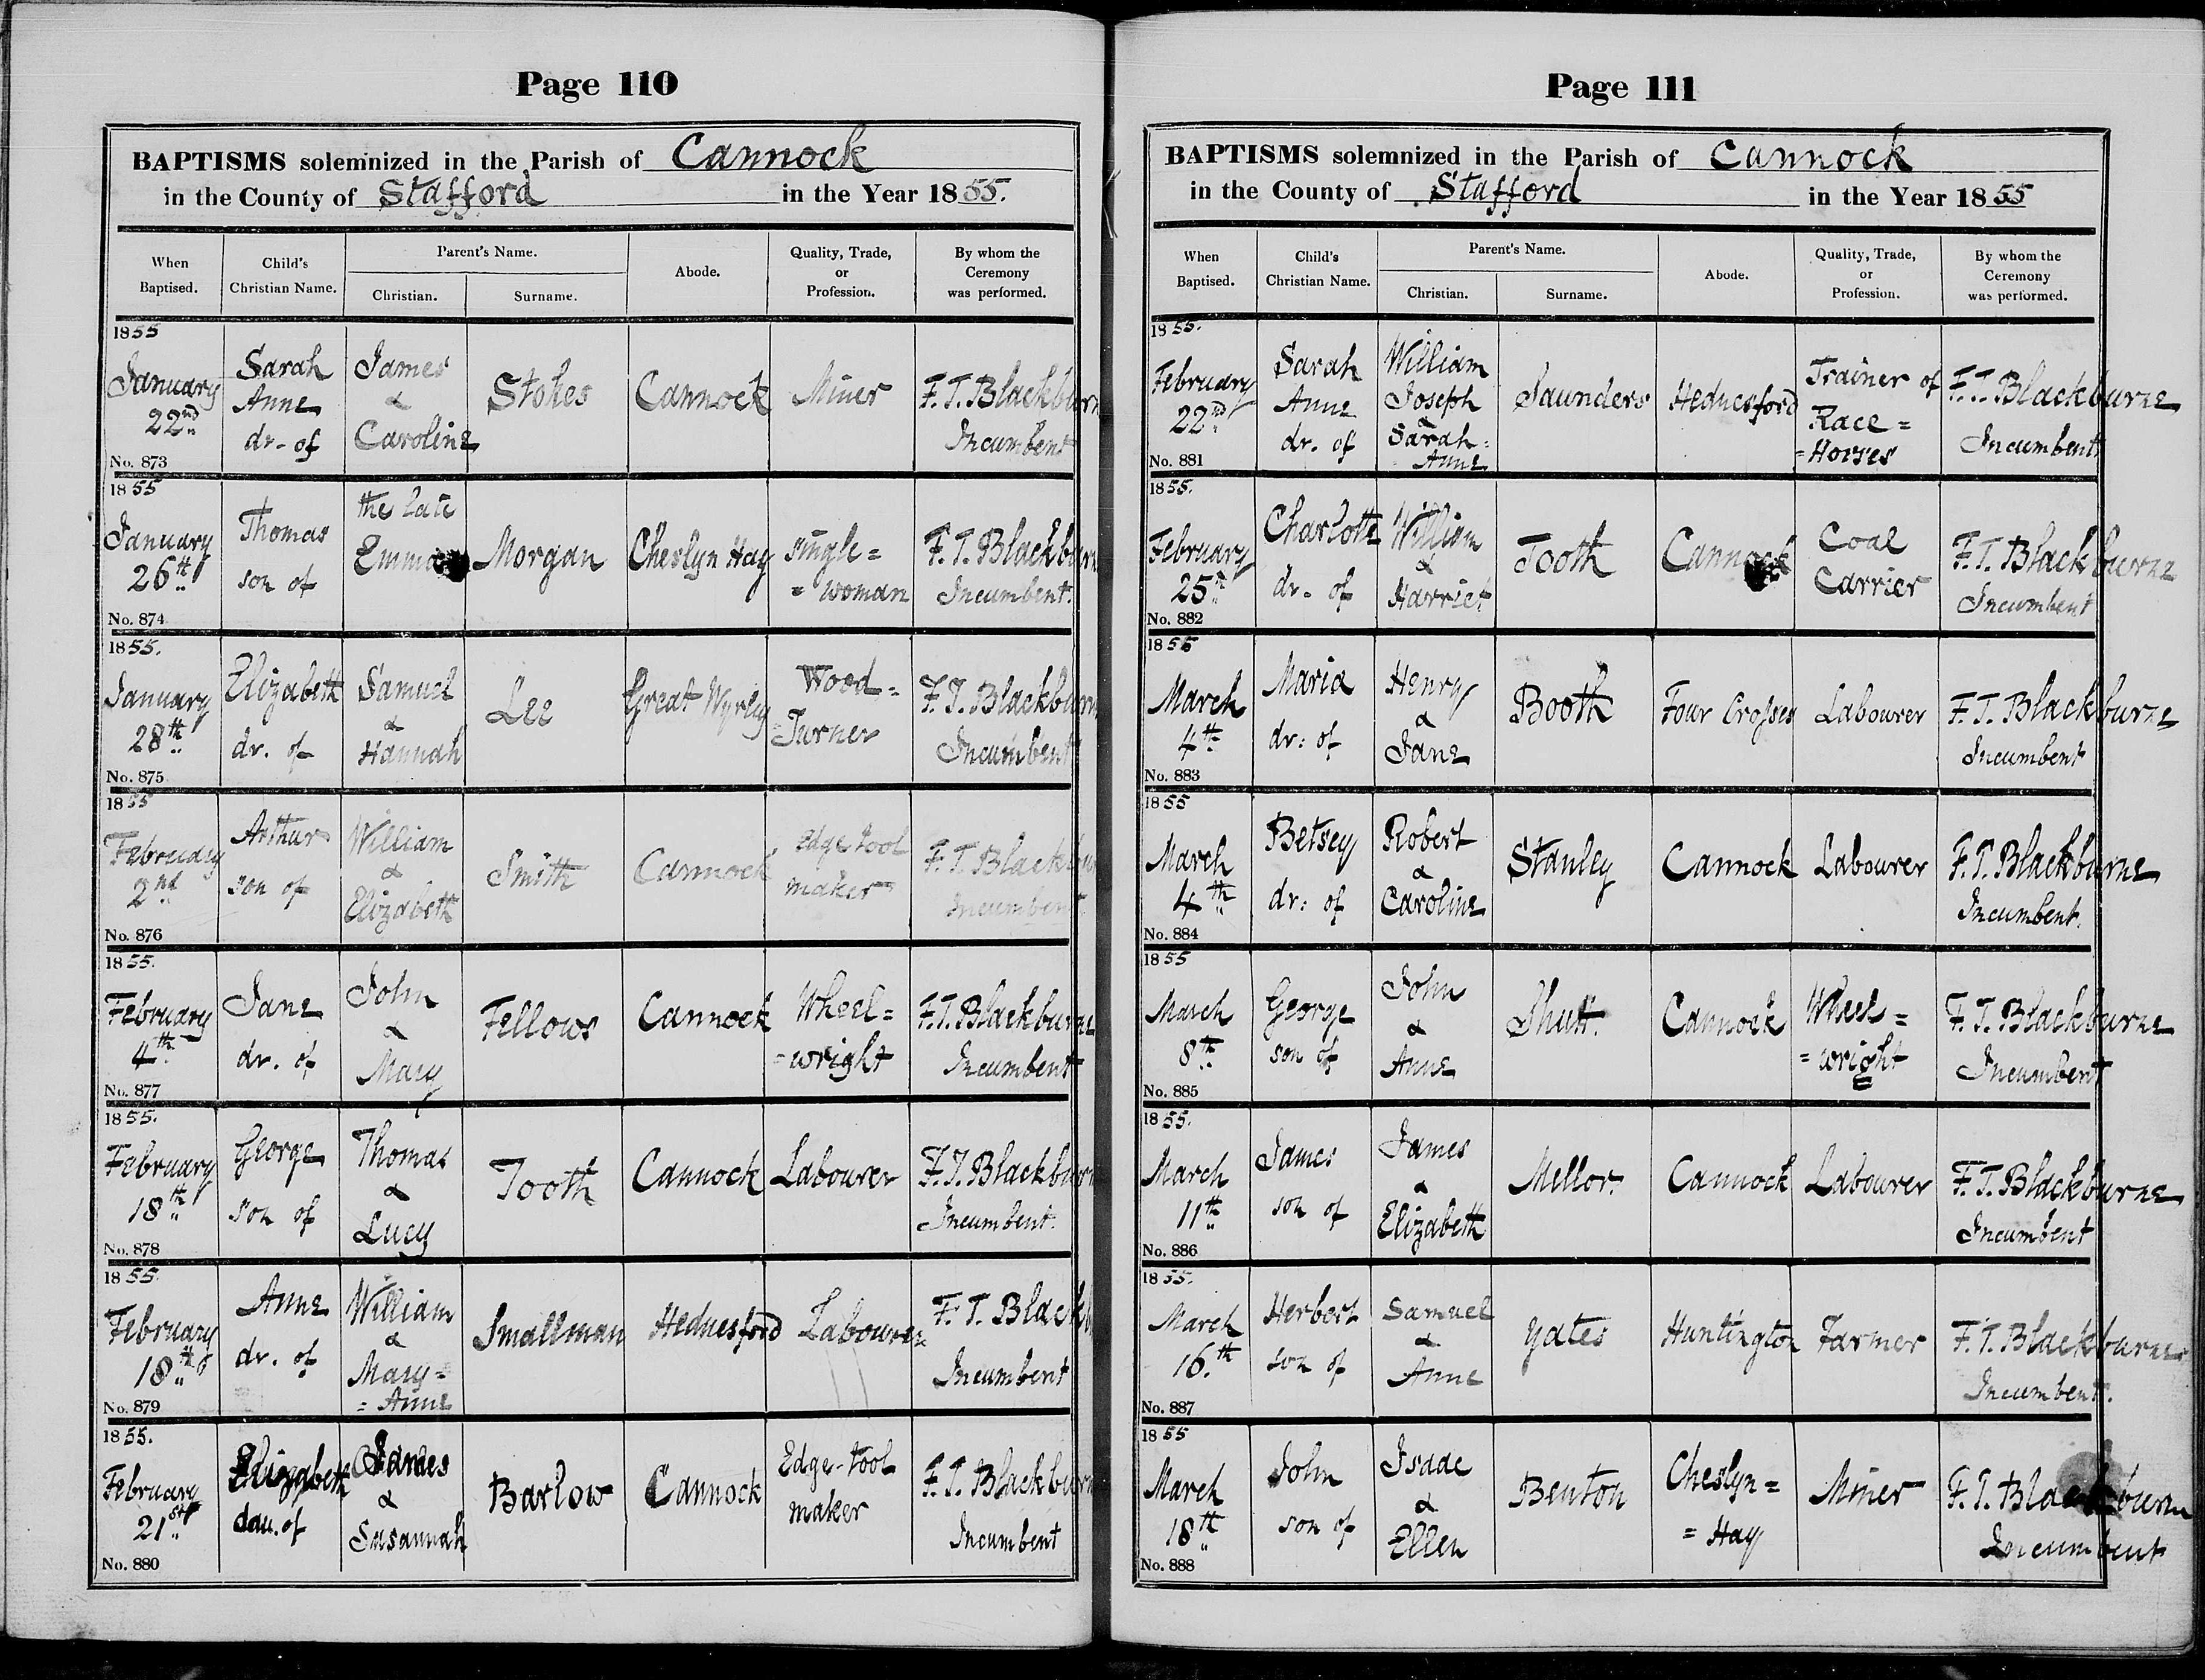 Page 110
BAPTISMS solemnized in the Parish of Cannock
in the County of Stafford in the Year 1855.
When Baptised.
Child's Christian Name.
Parent's Name.
Christian.
Surname.
Abode.
Quality, Trade, or Profession.
By whom the Ceremony was performed.
1855
January 22nd
No. 873
Sarah Anne dr. of
James & Caroline
Stokes
Cannock
Miner
F. T. Blackburn
Incumbent
1855
January 26th
No. 874
Thomas son of
the late Emma
Morgan
Cheslyn Hay
single =
= woman
F. T. Blackburn
Incumbent.
1855.
January 28th
No. 875
Elizabeth dr. of
Samuel & Hannah
Lee
Great Wyrley
Wood =
Turner
F. T. Blackburn
Incumbent
1855
February 2nd
No. 876
Arthur son of
William & Elizabeth
Smith
Cannock
Edge tool
maker
F. T. Blackbur
Incumbent.
1855.
February 4th
No. 877
Jane dr. of
John & Mary
Fellows
Cannock
Wheel =
= wright
F. T. Blackburne
Incumbent
1855.
February 18th
No. 878
George son of
Thomas & Lucy
Tooth
Cannock
Labourer
F. T. Blackburn
Incumbent.
1855.
February 18th
No. 879
Anne dr. of
William & Mary =
= Anne
Smallman
Hednesford
Labourer
F. T. Blackb
Incumbent
1855.
February 21st
No. 880
Elizabeth dau. of
James & Susannah
Barlow
Cannock
Edge-tool
maker
F. T. Blackburn
Incumbent
Page 111
BAPTISMS solemnized in the Parish of Cannock
in the County of Stafford in the Year 1855
When Baptised.
Child's Christian Name.
Parent's Name.
Christian.
Surname.
Abode.
Quality, Trade, or Profession.
By whom the Ceremony was performed.
1855.
February 22nd
No. 881
Sarah Anne dr. of
William Joseph & Sarah =
Anne
Saunders
Hednesford
Trainer of
Race =
= Horses
F. T. Blackburne
Incumbent
1855.
February 25th
No. 882
Charlotte dr. of
William & Harriet
Tooth
Cannock
Coal
Carrier
F. T. Blackburne
Incumbent
1855
March 4th
No. 883
Maria dr: of
Henry & Jane
Booth
Four Crosses
Labourer
F. T. Blackburne
Incumbent
1855
March 4th
No. 884
Betsey dr: of
Robert & Caroline
Stanley
Cannock
Labourer
F. T. Blackburne
Incumbent.
1855
March 8th
No. 885
George son of
John & Anne
Shutt.
Cannock
Wheel =
= wright
F. T. Blackburne
Incumbent
1855.
March 11th
No. 886
James son of
James & Elizabeth
Mellor.
Cannock
Labourer
F. T. Blackburne
Incumbent
1855.
March 16th
No. 887
Herbert son of
Samuel & Anne
Yates
Huntington
Farmer
F. T. Blackburne
Incumbent.
1855
March 18th
No. 888
John son of
Isaac & Ellen
Benton
Cheslyn =
= Hay
Miner
F. T. Blackburne
Incumbent